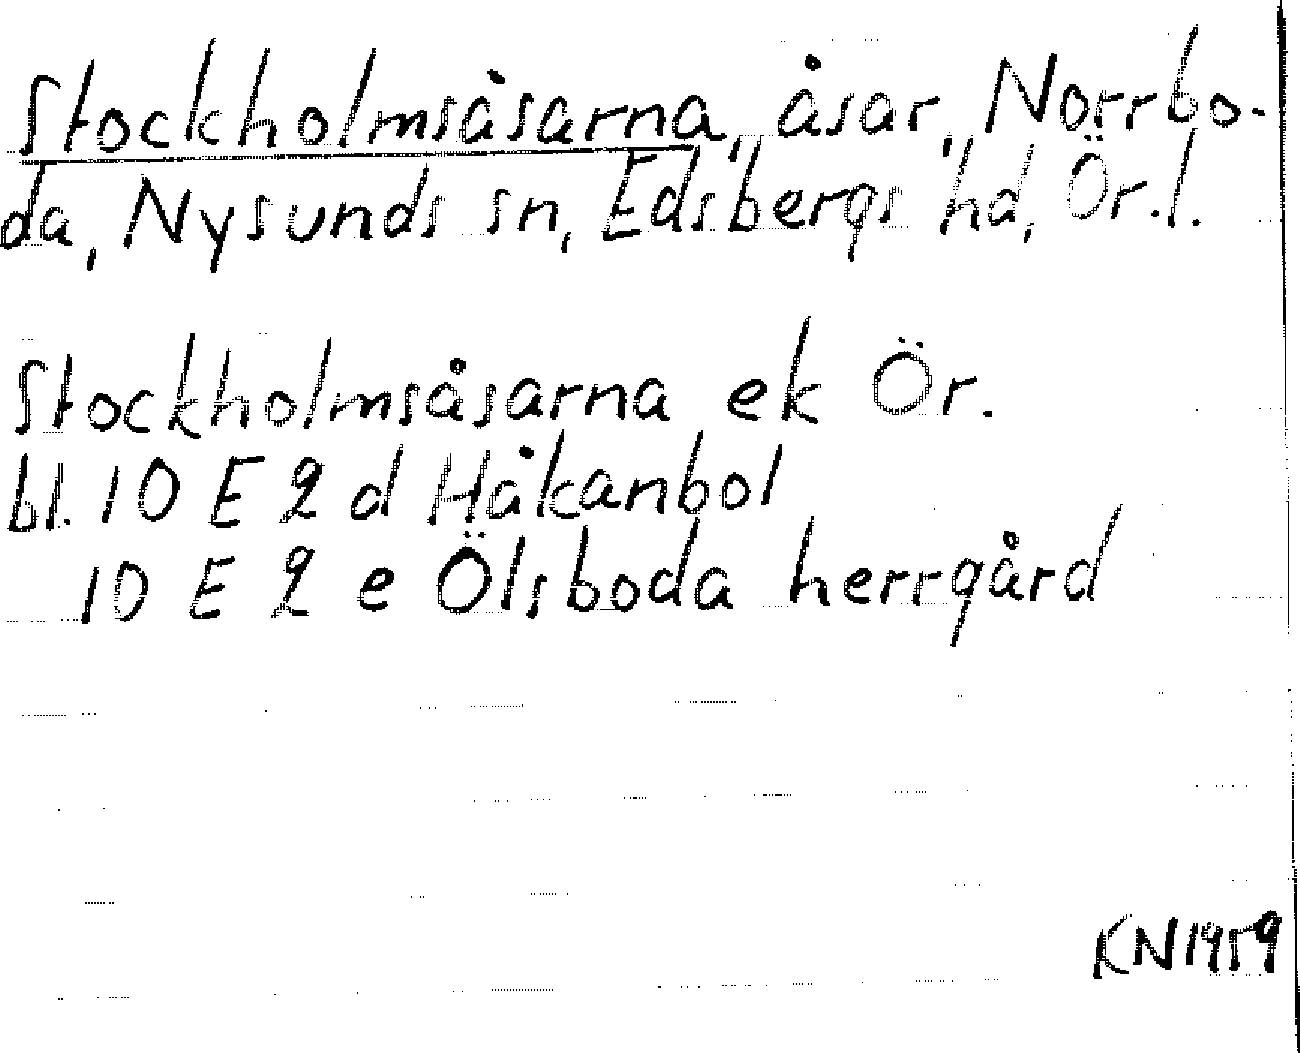 Stockholmsåsarna, åsar, Norrbo-
da, Nysunds sn, Edsbergs hd, Ör.l.
Stockholmsåsarna ek Ör.
bl. 10 E 2 d Håkanbol
10 E 2 e Ölsboda herrgård
KN 1959